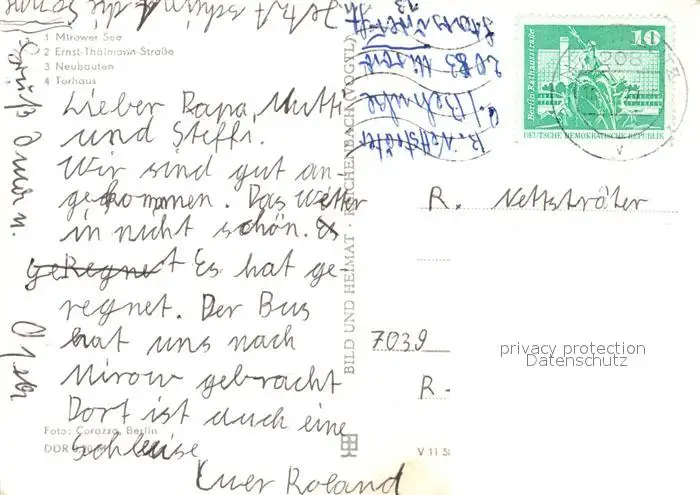 Jetzt scheint die Sonne
1 Mirower See
2 Ernst-Thälmann-Straße
3 Neubauten
4 Torhaus
Lieber Papa, Mutti
und Steffi.
Wir sind gut an-
gekommen. Das Wetter
in nicht schön. Es
geRegnet Es hat ge-
regnet. Der Bus
hat uns nach
Mirow gebracht
Dort ist auch eine
Schleuse
Euer Roland
Gruß Oma u.
Foto: Corazza, Berlin
BILD UND HEIMAT · REICHENBACH (VOGTL
R. Nettsträter
2083 Mirow
Berlin-Rathausstraße
10
DEUTSCHE DEMOKRATISCHE REPUBLIK
208
R. Nettsträter
7039
R-
V 11 50
privacy protection
Datenschutz